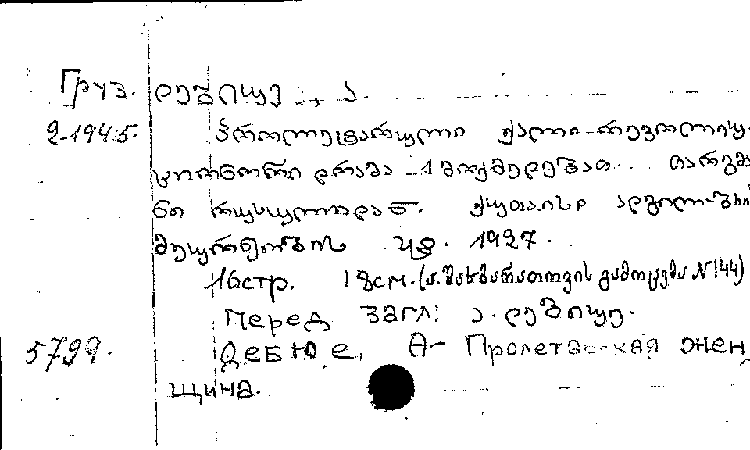 Груз. დებიუე, ა.
2-1945. პროლეტარული ქალი-რევოლიუ-
ციონური დრამა 1 მოქმედებათ. თარგმა
ნი რუსულიდან. ქუთაისი ადგილობრ.
მეურნეობის 1927.
16стр. 18см. (ა. გამოცემა №144)
Перед загл: ა. დებიუე.
5799. Дебюе, А- Пролетарская жен
щина.